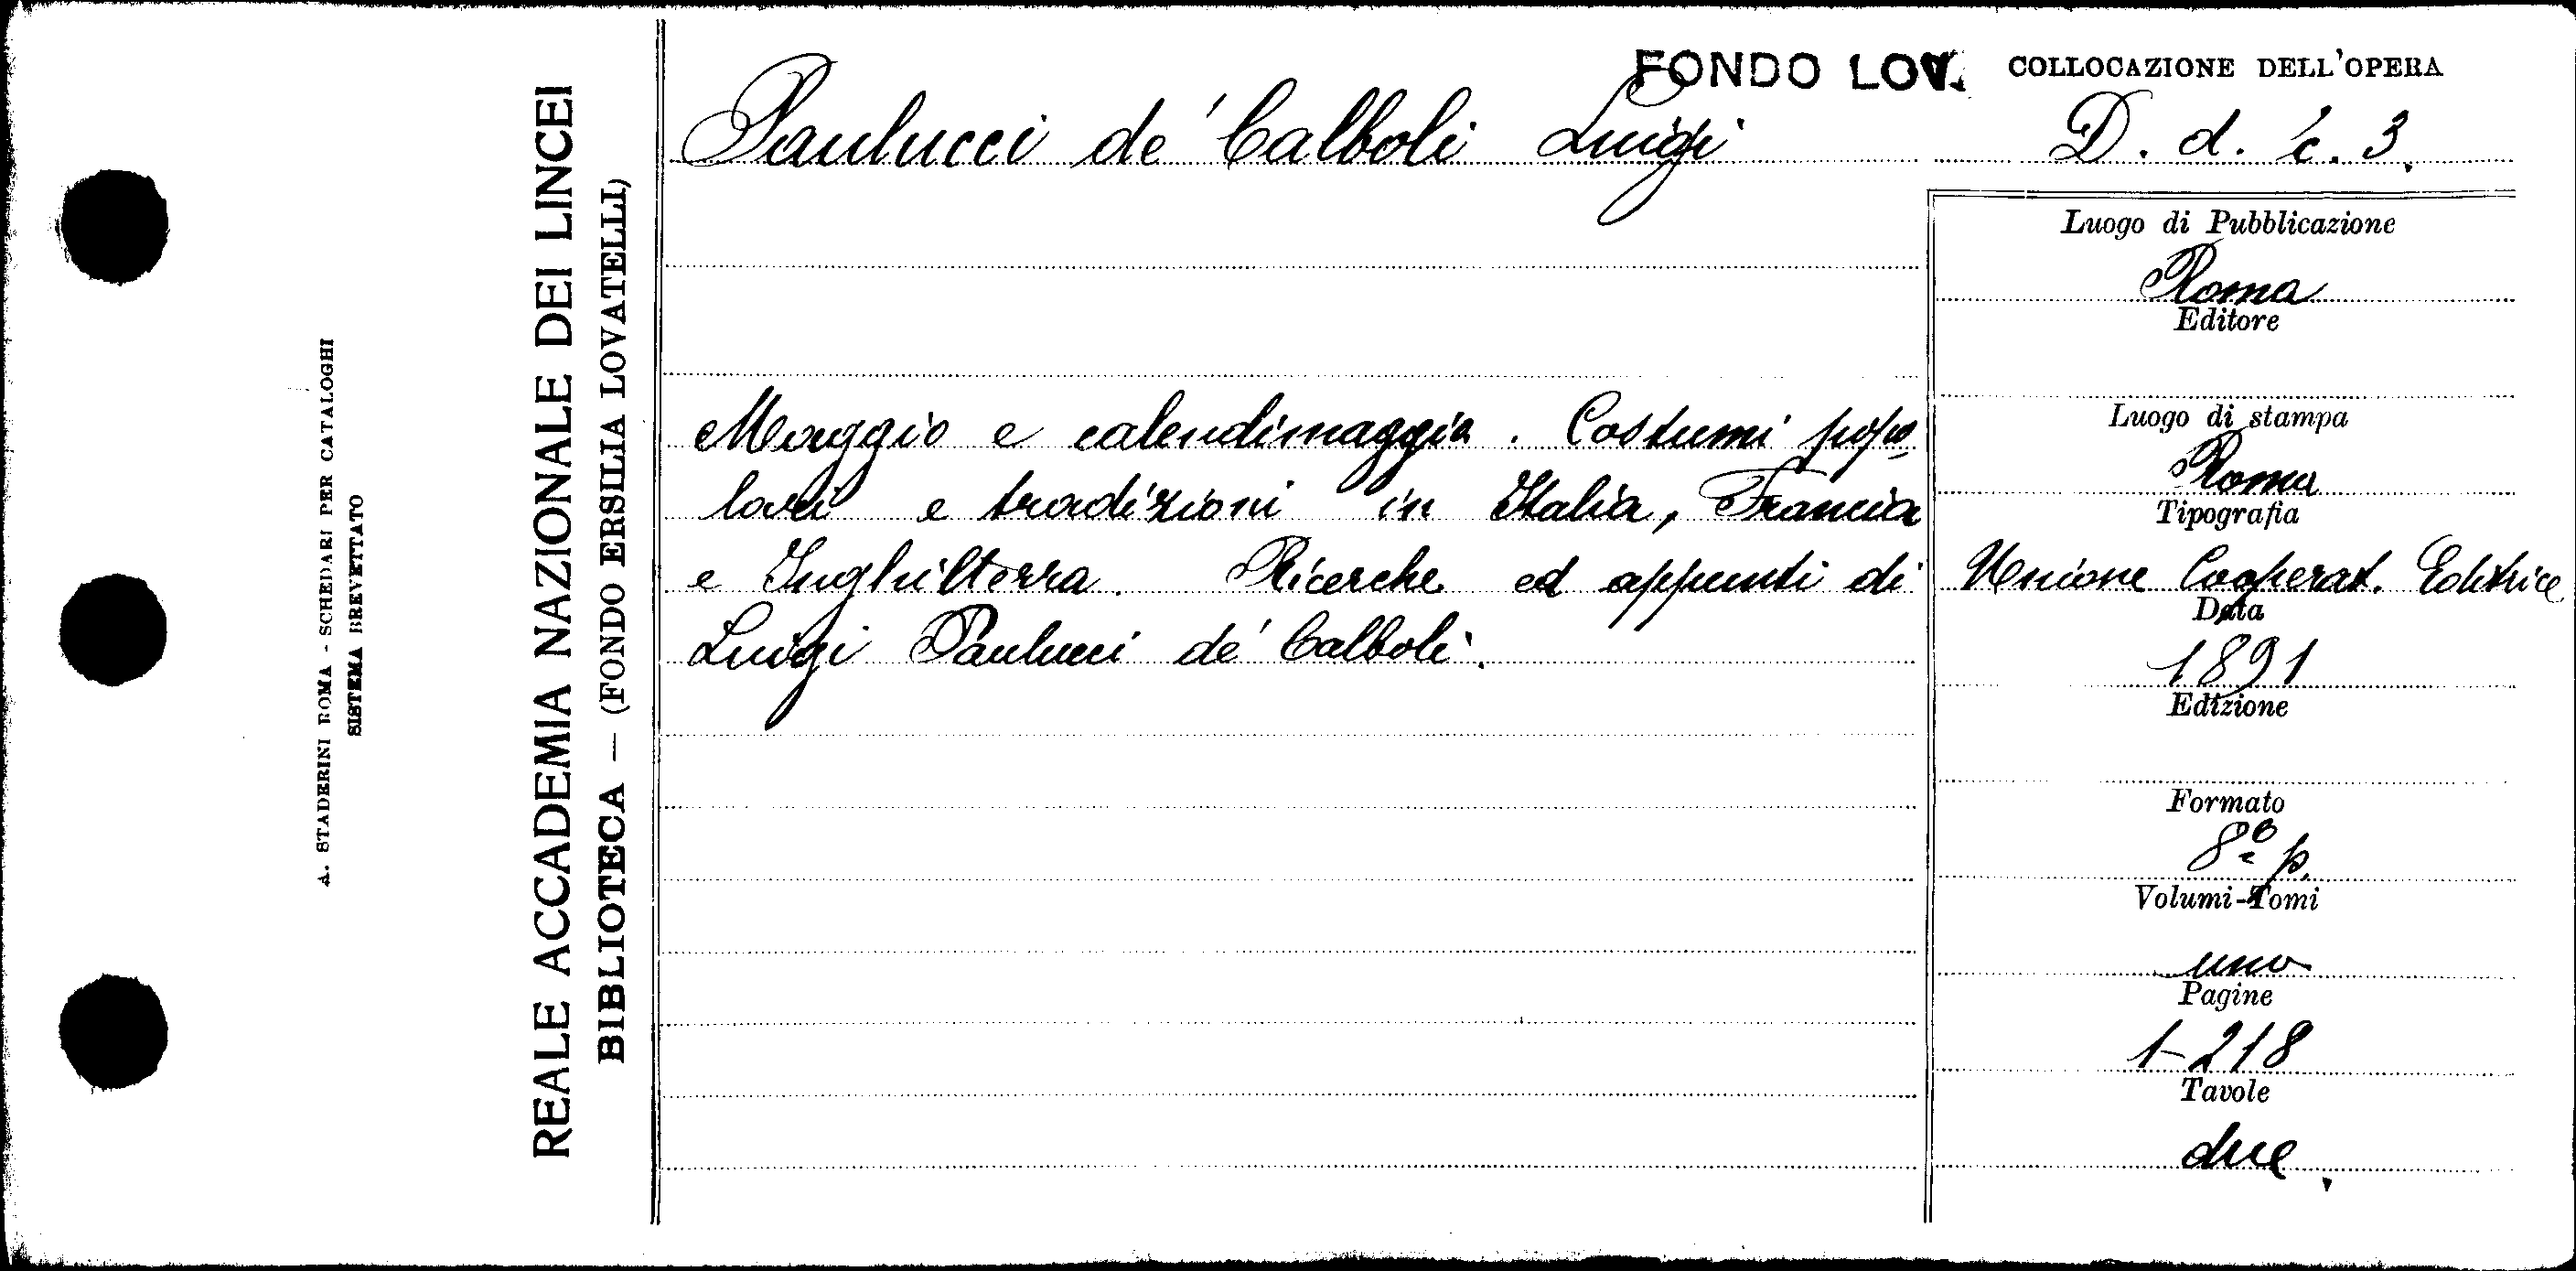 A. STADERINI ROMA - SCHEDARI PER CATALOGHI
SISTEMA BREVETTATO
REALE ACCADEMIA NAZIONALE DEI LINCEI
BIBLIOTECA — (FONDO ERSILIA LOVATELLI)
FONDO LOV.
Paulucci de' Calboli Luigi
Maggio e calendimaggio. Costumi popo
lari e tradizioni in Italia, Francia
e Inghilterra. Ricerche ed appunti di
Luigi Paulucci de' Calboli.
COLLOCAZIONE DELL'OPERA
D. d. c. 3.
Luogo di Pubblicazione
Roma
Editore
Luogo di stampa
Roma
Tipografia
Unione Cooperat. Editrice
Data
1891
Edizione
Formato
8º p.
Volumi-Tomi
uno
Pagine
1-218
Tavole
due